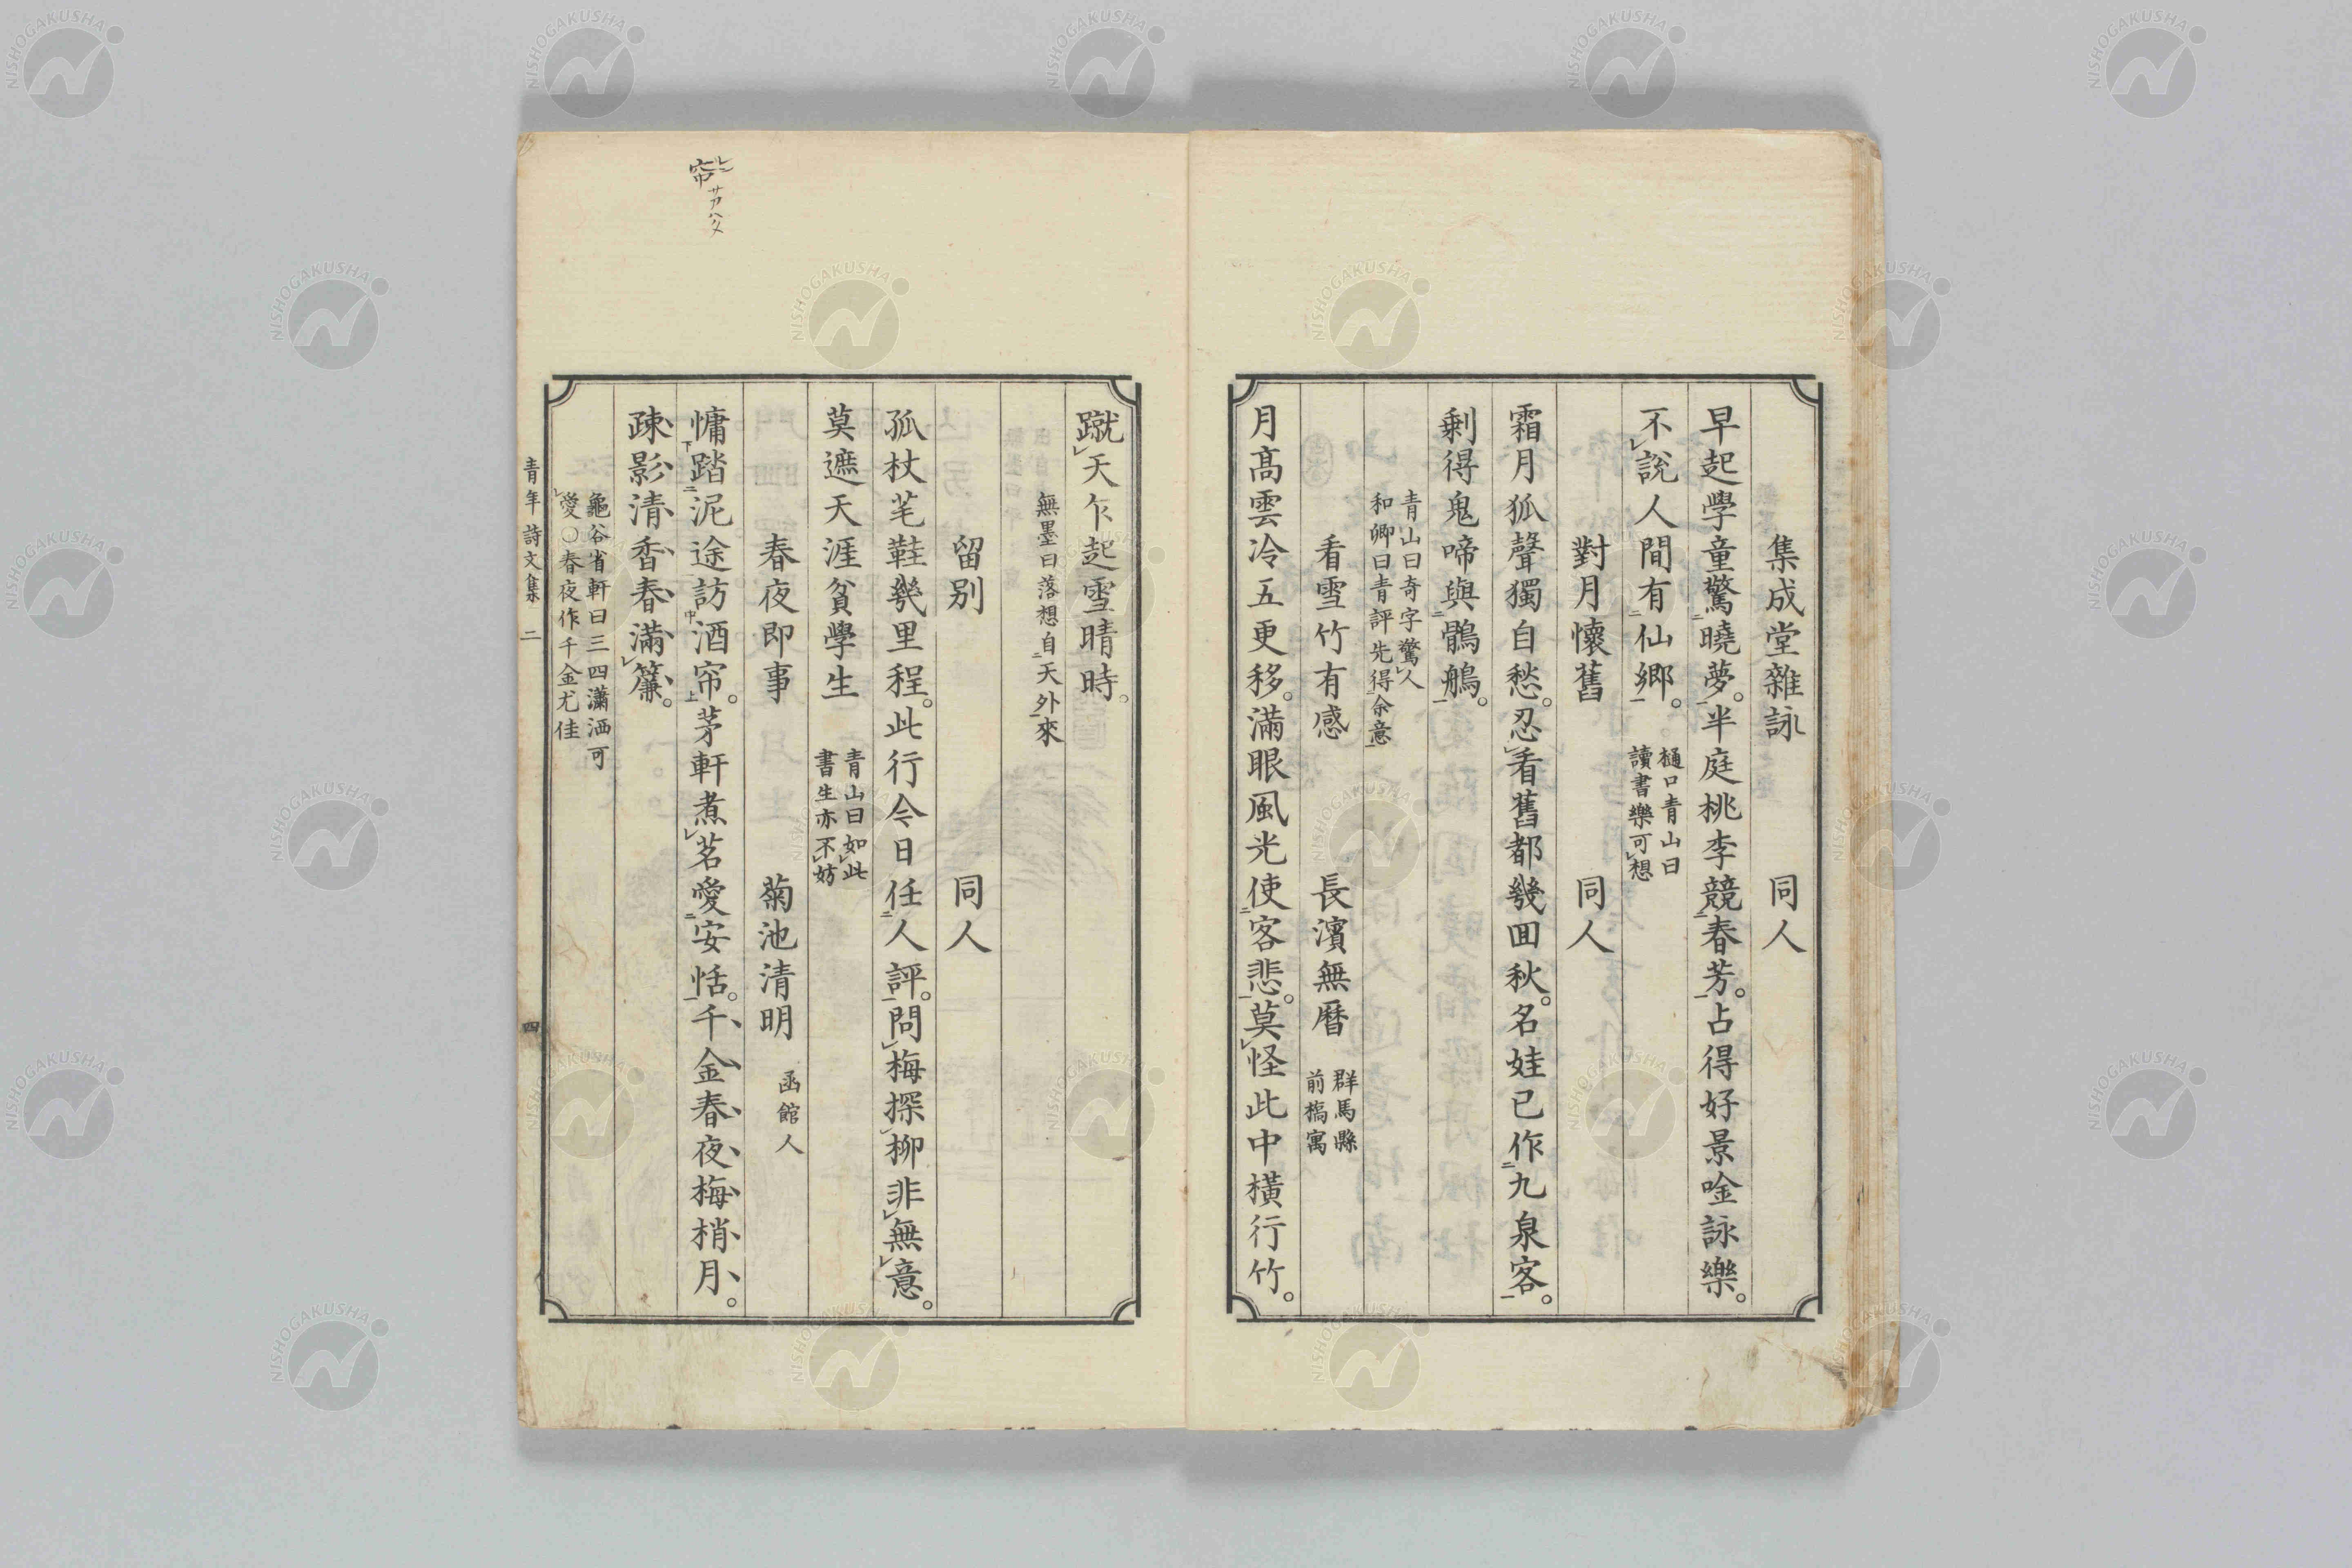 集成堂雜詠　同人
早起學童驚二曉夢一。半庭桃李競二春芳一。占得好景唫詠樂。
不レ說人間有二仙鄉一。
樋口青山曰
讀書樂可レ想
對月懷舊　同人
霜月狐聲獨自愁。忍レ看舊都幾回秋。名娃已作二九泉客一。
剩得鬼啼與二鶻鵃一。
青山曰奇字驚レ人
和卿曰青評先得二余意一
看雪竹有感　長濱無曆
群馬縣
前橋寓
月高雲冷五更移。滿眼風光使二客悲一。莫レ怪此中橫行竹。
蹴レ天乍起雪晴時。
無墨曰落想自二天外一來
留別　同人
孤杖芼鞋幾里程。此行今日任二人評一。問レ梅探レ柳非レ無レ意。
莫遮天涯貧學生
青山曰如レ此
書生亦不レ妨
春夜即事　菊池清明　函館人
慵下踏二泥途一訪中酒帘上。茅軒煮レ茗愛二安恬一。千金春夜梅梢月。
疎影清香春滿レ簾。
龜谷省軒曰三四瀟洒可
レ愛〇春夜作千金尤佳
青年詩文集　二
四
帘
NISHOGAKUSHA